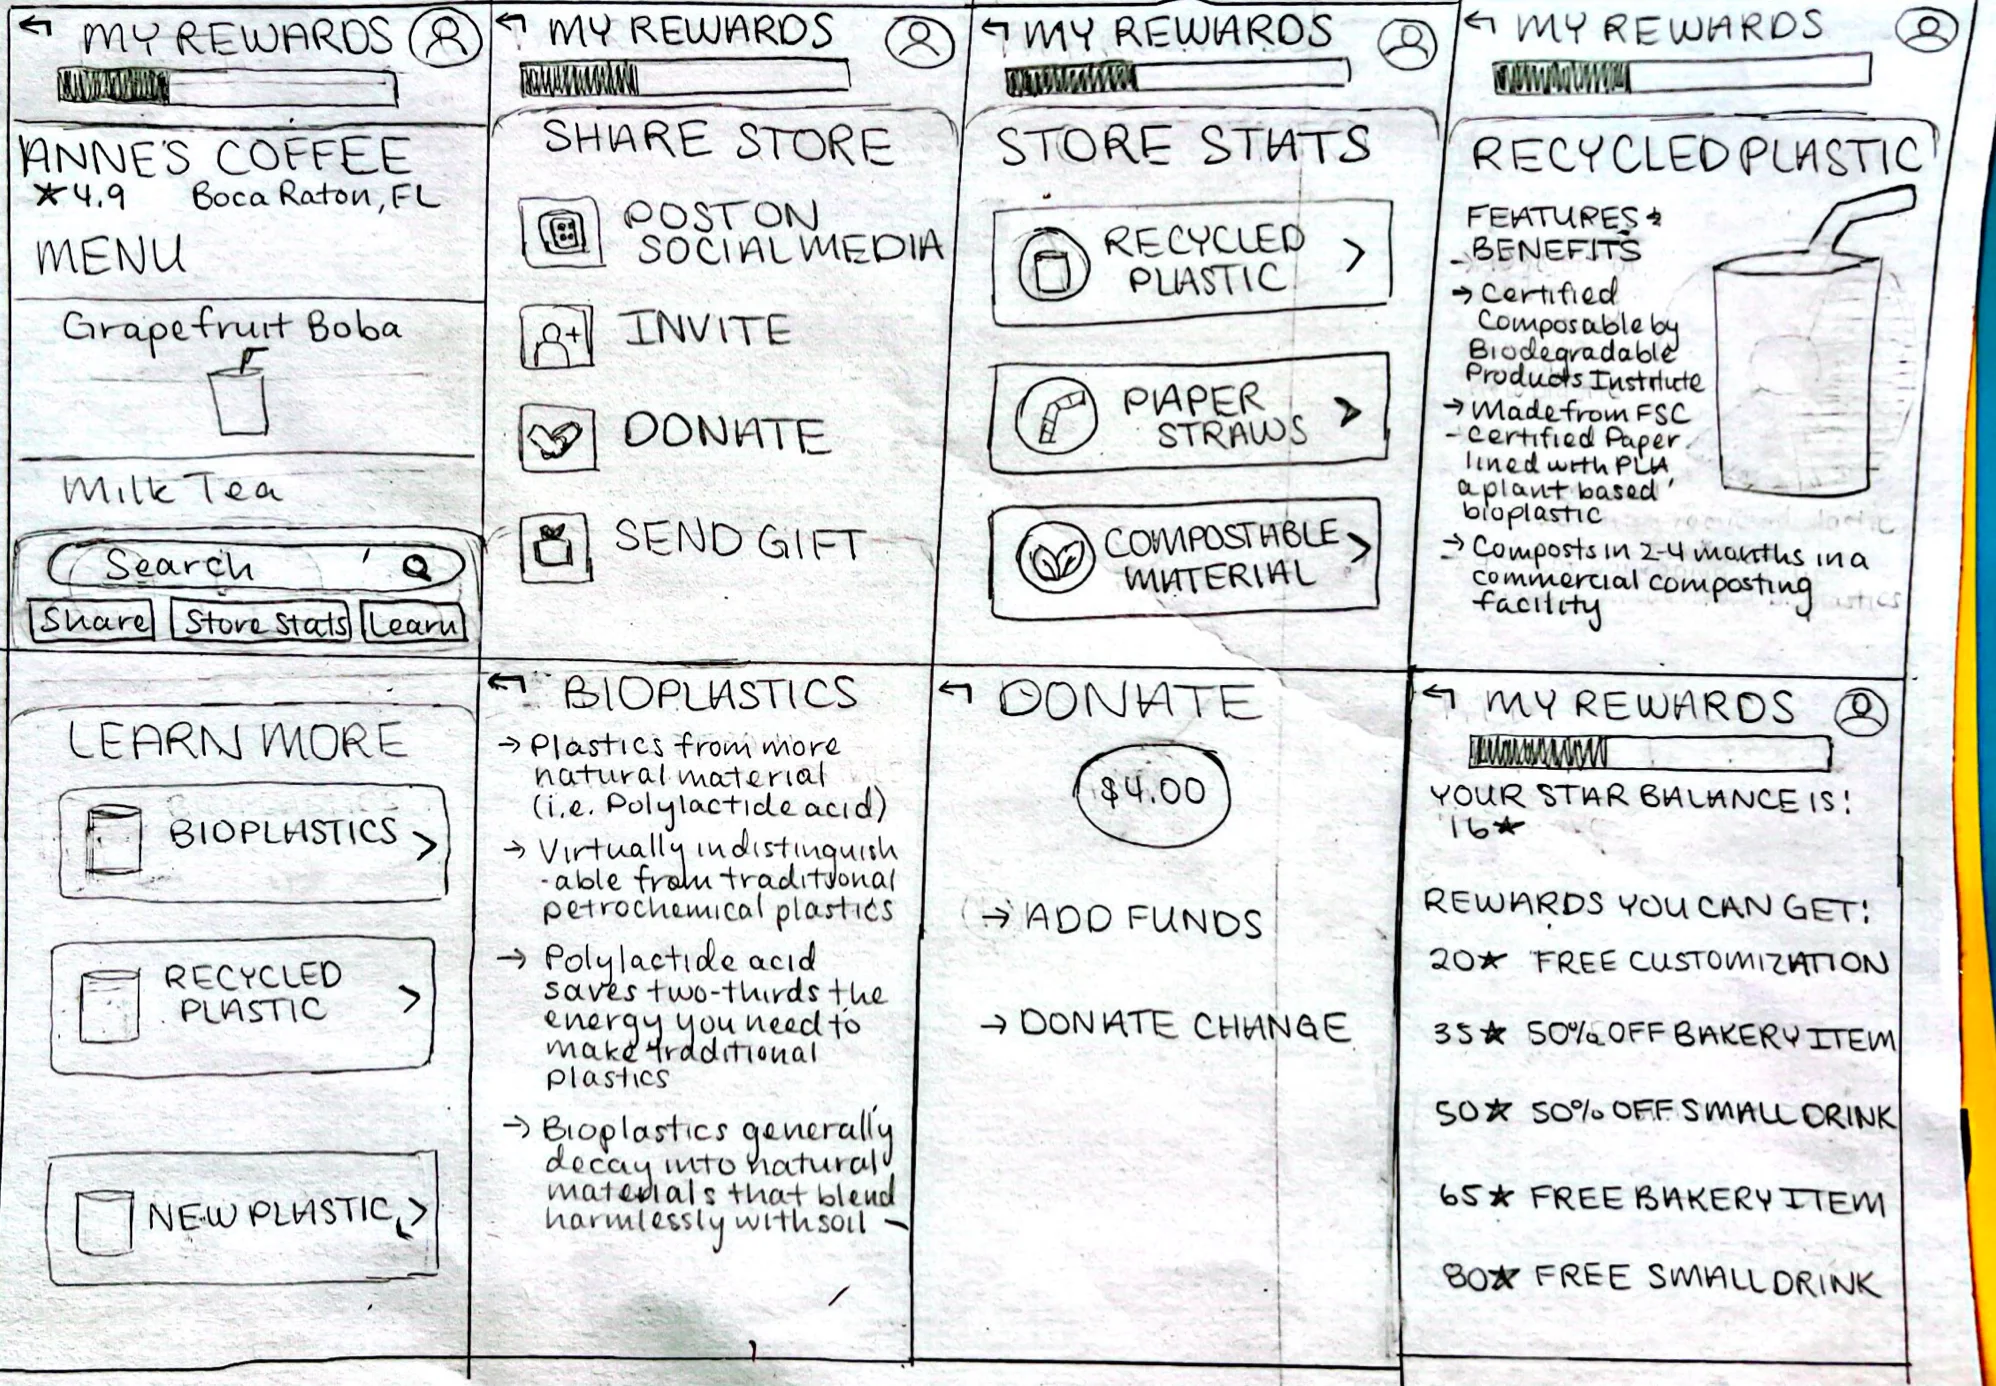 MY REWARDS
ANNE'S COFFEE
★4.9 Boca Raton, FL
MENU
Grapefruit Boba
Milk Tea
Search
Share Store Stats Learn
MY REWARDS
SHARE STORE
POST ON
SOCIAL MEDIA
INVITE
DONATE
SEND GIFT
MY REWARDS
STORE STATS
RECYCLED
PLASTIC
PAPER
STRAWS
COMPOSTABLE
MATERIAL
MY REWARDS
RECYCLED PLASTIC
FEATURES &
BENEFITS
→ Certified
Composable by
Biodegradable
Products Institute
→ Made from FSC
- Certified Paper
lined with PLA
a plant based
bioplastic
→ Composts in 2-4 months in a
commercial composting
facility
LEARN MORE
BIOPLASTICS
RECYCLED
PLASTIC
NEW PLASTIC
BIOPLASTICS
→ Plastics from more
natural material
(i.e. Polylactide acid)
→ Virtually indistinguish
-able from traditional
petrochemical plastics
→ Polylactide acid
saves two-thirds the
energy you need to
make traditional
plastics
→ Bioplastics generally
decay into natural
materials that blend
harmlessly with soil
DONATE
$4.00
→ ADD FUNDS
→ DONATE CHANGE
MY REWARDS
YOUR STAR BALANCE IS:
16★
REWARDS YOU CAN GET:
20★ FREE CUSTOMIZATION
35★ 50% OFF BAKERY ITEM
50★ 50% OFF SMALL DRINK
65★ FREE BAKERY ITEM
80★ FREE SMALL DRINK